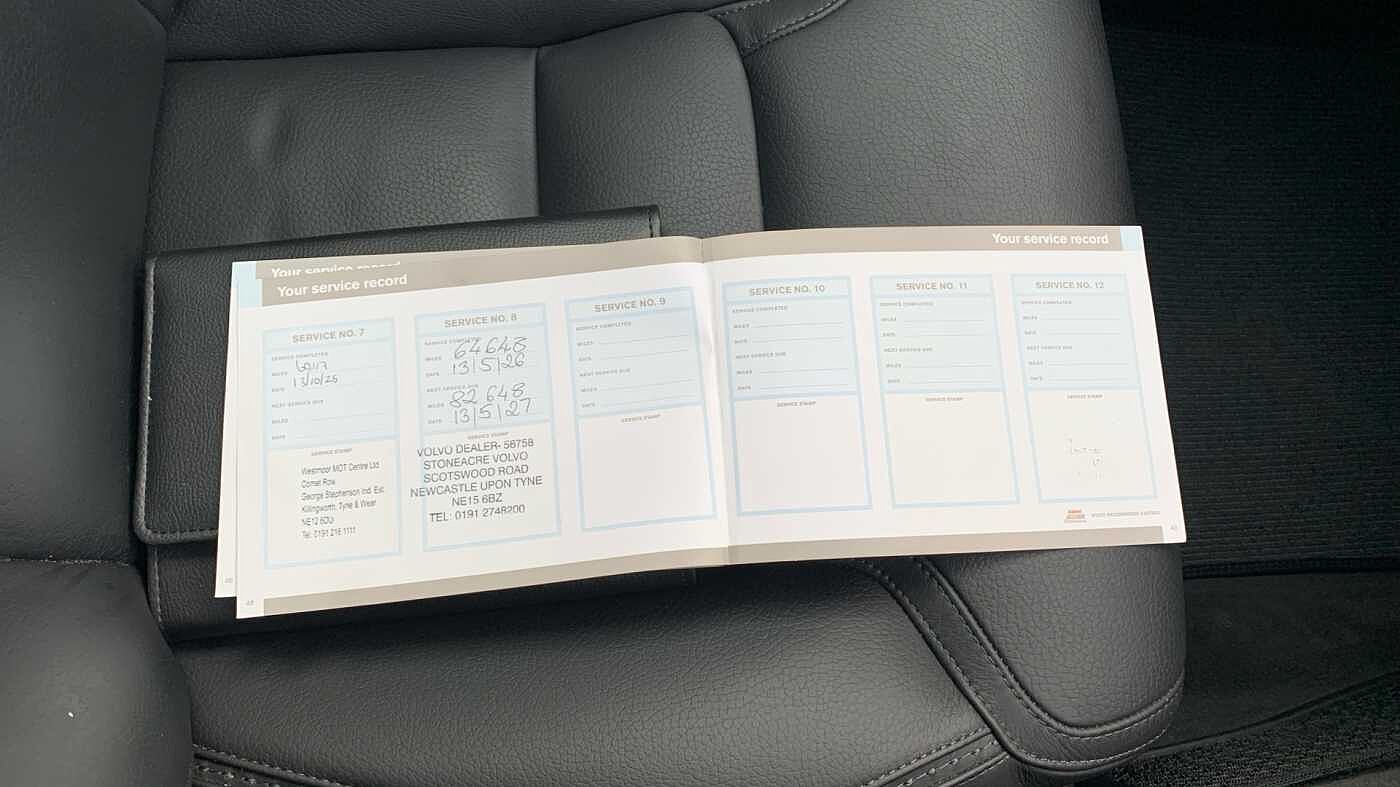 Your service record
Your service record
Your service record
SERVICE NO. 7
SERVICE COMPLETED
MILES
DATE 13/10/25
NEXT SERVICE DUE
MILES
DATE
SERVICE STAMP
Westmoor MOT Centre Ltd
Comet Row
George Stephenson Ind. Est.
Killingworth, Tyne & Wear
NE12 6DU
Tel: 0191 216 1111
SERVICE NO. 8
SERVICE COMPLETED
MILES 64648
DATE 13/5/26
NEXT SERVICE DUE
MILES 82 648
DATE 13/5/27
SERVICE STAMP
VOLVO DEALER- 56758
STONEACRE VOLVO
SCOTSWOOD ROAD
NEWCASTLE UPON TYNE
NE15 6BZ
TEL: 0191 2748200
SERVICE NO. 9
SERVICE COMPLETED
MILES
DATE
NEXT SERVICE DUE
MILES
DATE
SERVICE STAMP
SERVICE NO. 10
SERVICE COMPLETED
MILES
DATE
NEXT SERVICE DUE
MILES
DATE
SERVICE STAMP
SERVICE NO. 11
SERVICE COMPLETED
MILES
DATE
NEXT SERVICE DUE
MILES
DATE
SERVICE STAMP
SERVICE NO. 12
SERVICE COMPLETED
MILES
DATE
NEXT SERVICE DUE
MILES
DATE
SERVICE STAMP